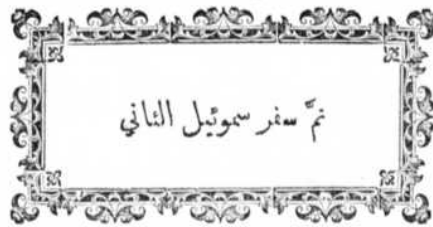 تمَّ سفر سموئيل الثاني